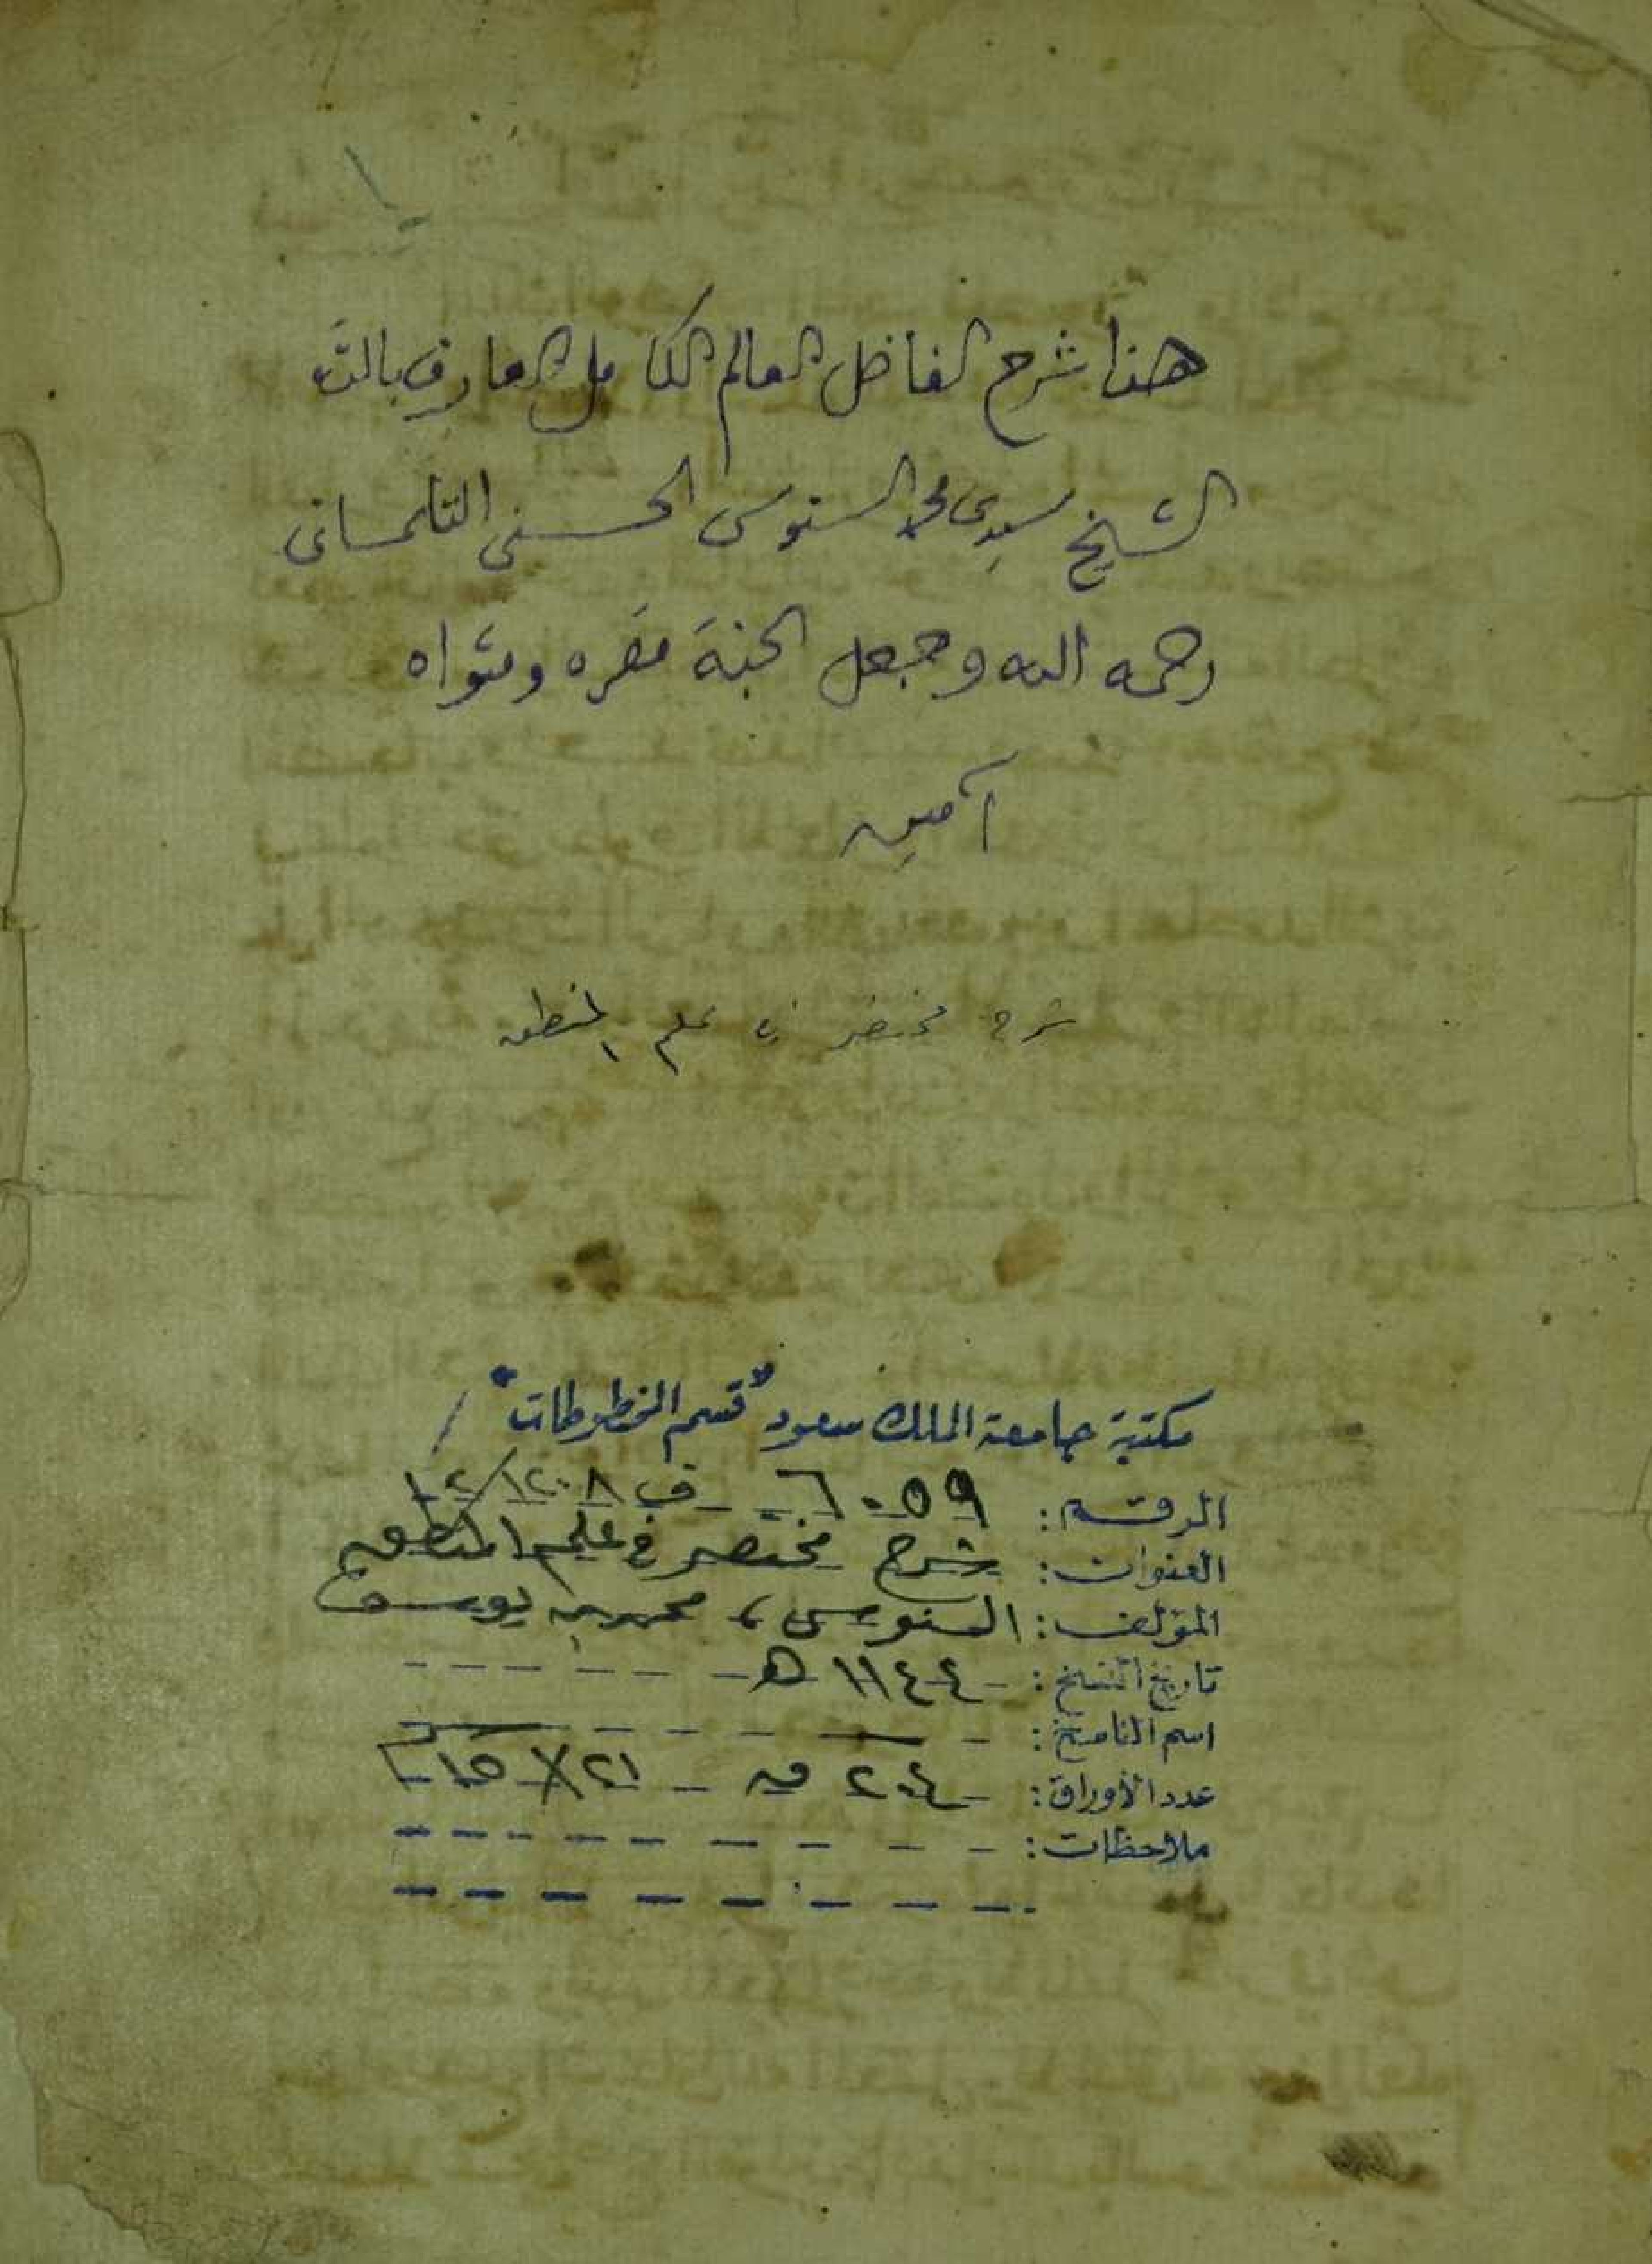 هذا شرح الفاضل العالم الكامل العارف بالله
الشيخ سيدى محمد السنوسى الحسنى التلمسانى
رحمه الله وجعل الجنة مقره ومثواه
آمين
شرح مختصر فى علم المنطق
مكتبة جامعة الملك سعود "قسم المخطوطات"
الرقم: ٦٠٥٩ ف ١٢٠٨/٢
العنوان: شرح مختصر في علم المنطق
المؤلف: السنوسي، محمد بن يوسف
تاريخ النسخ: ١١٤٤ هـ
اسم الناسخ:
عدد الأوراق: ٢٠٤ ق ٢١×١٥
ملاحظات: